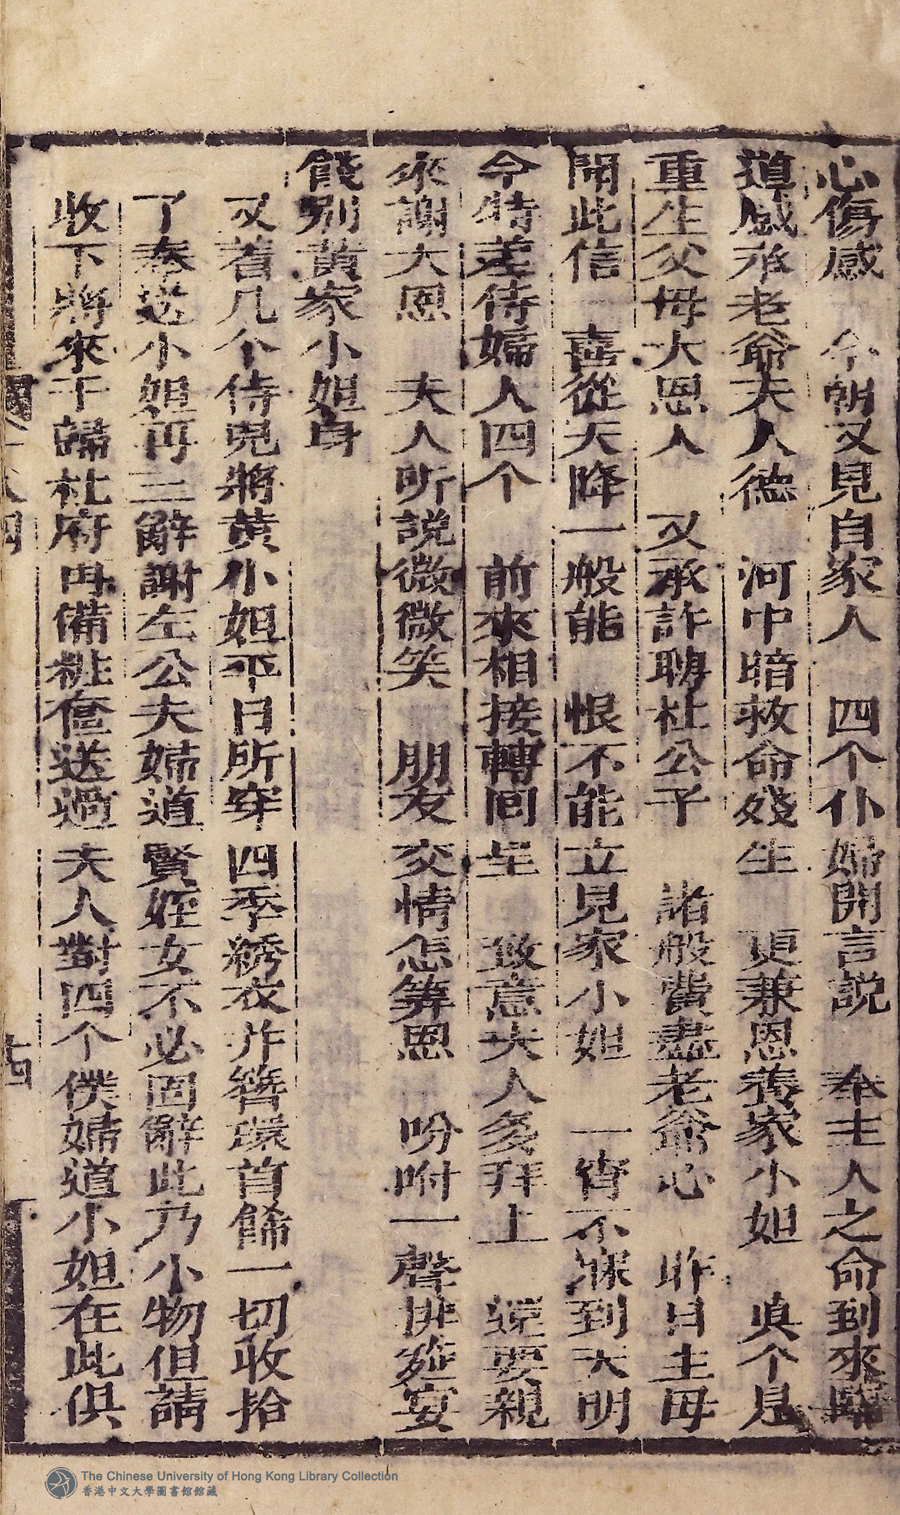 心傷感　今朝又見自家人　四个仆婦開言說　奉主人之命到來臨
道感承老爺夫人德　河中暗救命殘生　更兼恩養家小姐　真个是
重生父母大恩人　又承許聘杜公子　諸般費盡老爺心　昨日主母
開此信　喜從天降一般能　恨不能立見家小姐　一宵不寐到天明
今特差侍婦人四个　前來相接轉回呈　致意夫人多拜上　還要親
來謝大恩　夫人所說微微笑　朋友交情怎筭恩　吩咐一聲排筵宴
餞別黃家小姐身
又着几个侍兒將黃小姐平日所穿四季綉衣并簪環首飾一切收拾
了奉送小姐再三辭謝左公夫婦道賢姪女不必固辭此乃小物但請
收下將來于歸杜府再備粧奩送過夫人對四个僕婦道小姐在此俱
The Chinese University of Hong Kong Library Collection
香港中文大學圖書館館藏